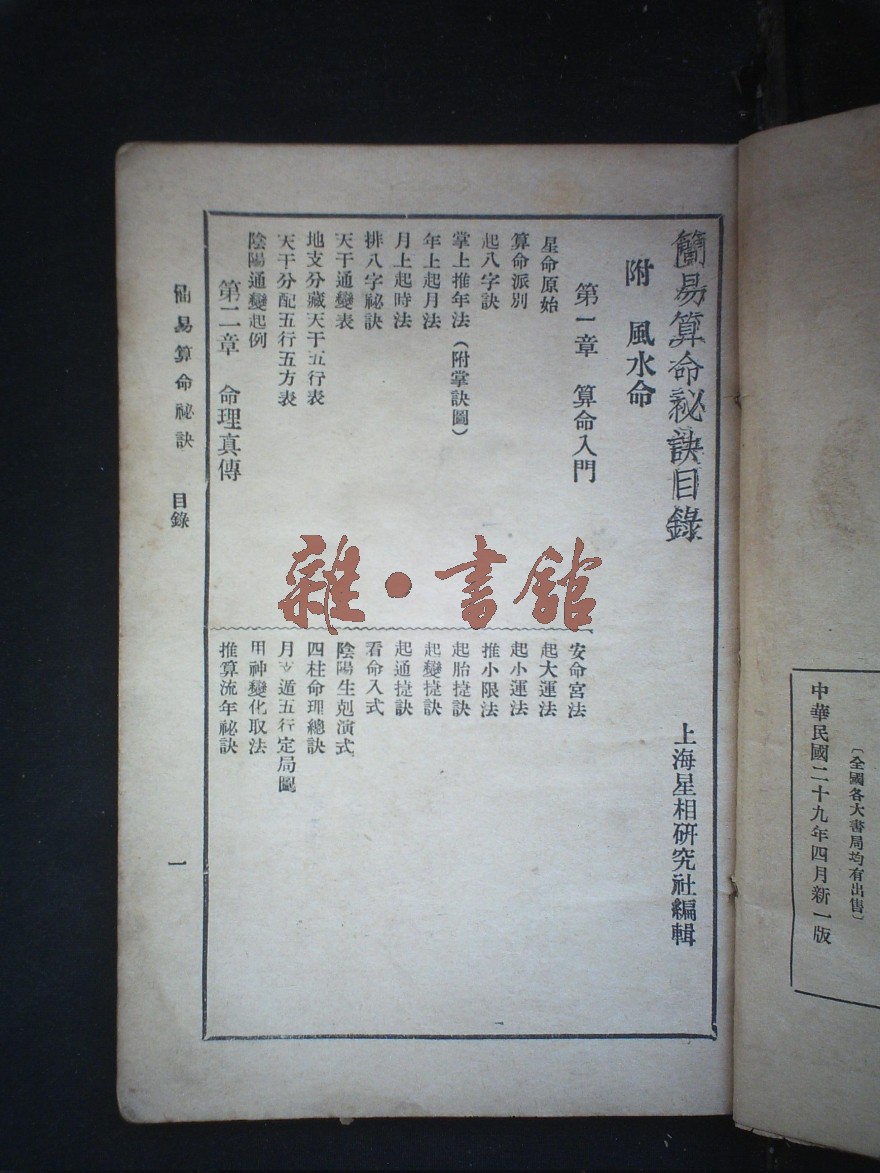 〔全國各大書局均有出售〕
中華民國二十九年四月新一版
簡易算命祕訣目錄
上海星相研究社編輯
附　風水命
第一章　算命入門
星命原始
算命派別
起八字訣
掌上推年法（附掌訣圖）
年上起月法
月上起時法
排八字祕訣
天干通變表
地支分藏天干五行表
天干分配五行五方表
陰陽通變起例
第二章　命理真傳
安命宮法
起大運法
起小運法
推小限法
起胎捷訣
起變捷訣
起通捷訣
看命入式
陰陽生剋演式
四柱命理總訣
月支遁五行定局圖
用神變化取法
推算流年祕訣
簡易算命祕訣　目錄
一
雜·書館